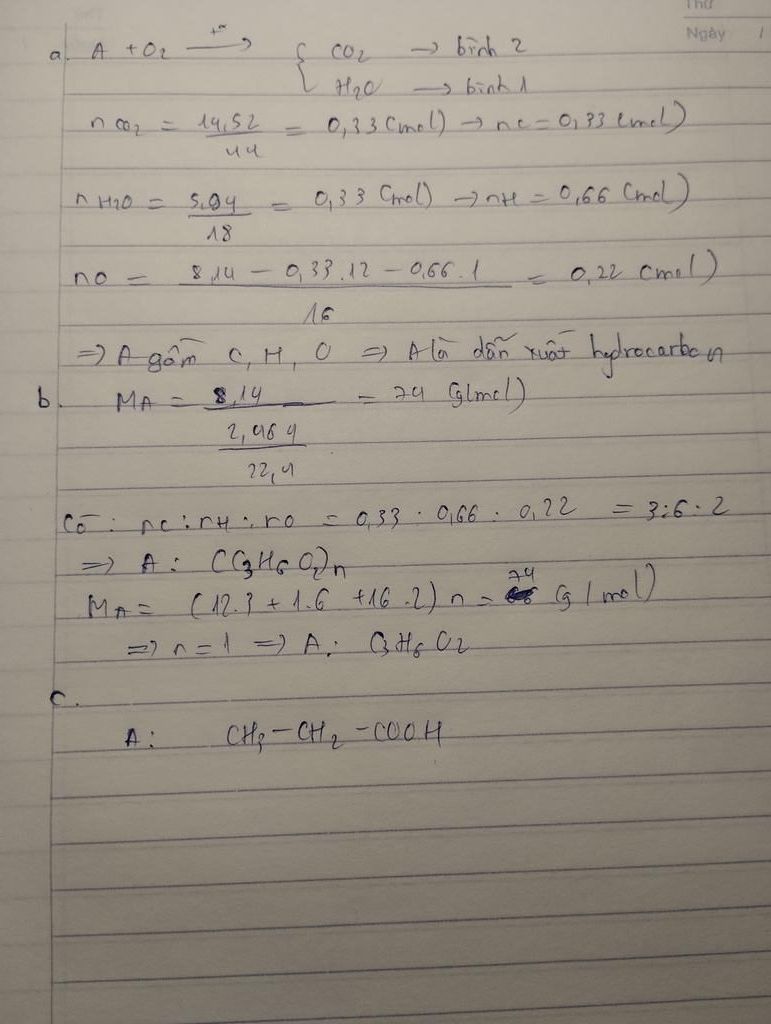 Thứ
Ngày /
a. A + O2 —t°→ { CO2 → bình 2
H2O → bình 1
nCO2 = 14,52 / 44 = 0,33 (mol) → nC = 0,33 (mol)
nH2O = 5,94 / 18 = 0,33 (mol) → nH = 0,66 (mol)
nO = 8,14 - 0,33.12 - 0,66.1 / 16 = 0,22 (mol)
=> A gồm C, H, O => A là dẫn xuất hydrocarbon
b. MA = 8,14 / 2,464 / 22,4 = 74 (g/mol)
Có: nC : nH : nO = 0,33 : 0,66 : 0,22 = 3:6:2
=> A: (C3H6O2)n
MA = (12.3 + 1.6 + 16.2) n = 74 (g/mol)
=> n = 1 => A: C3H6O2
c.
A: CH3-CH2-COOH